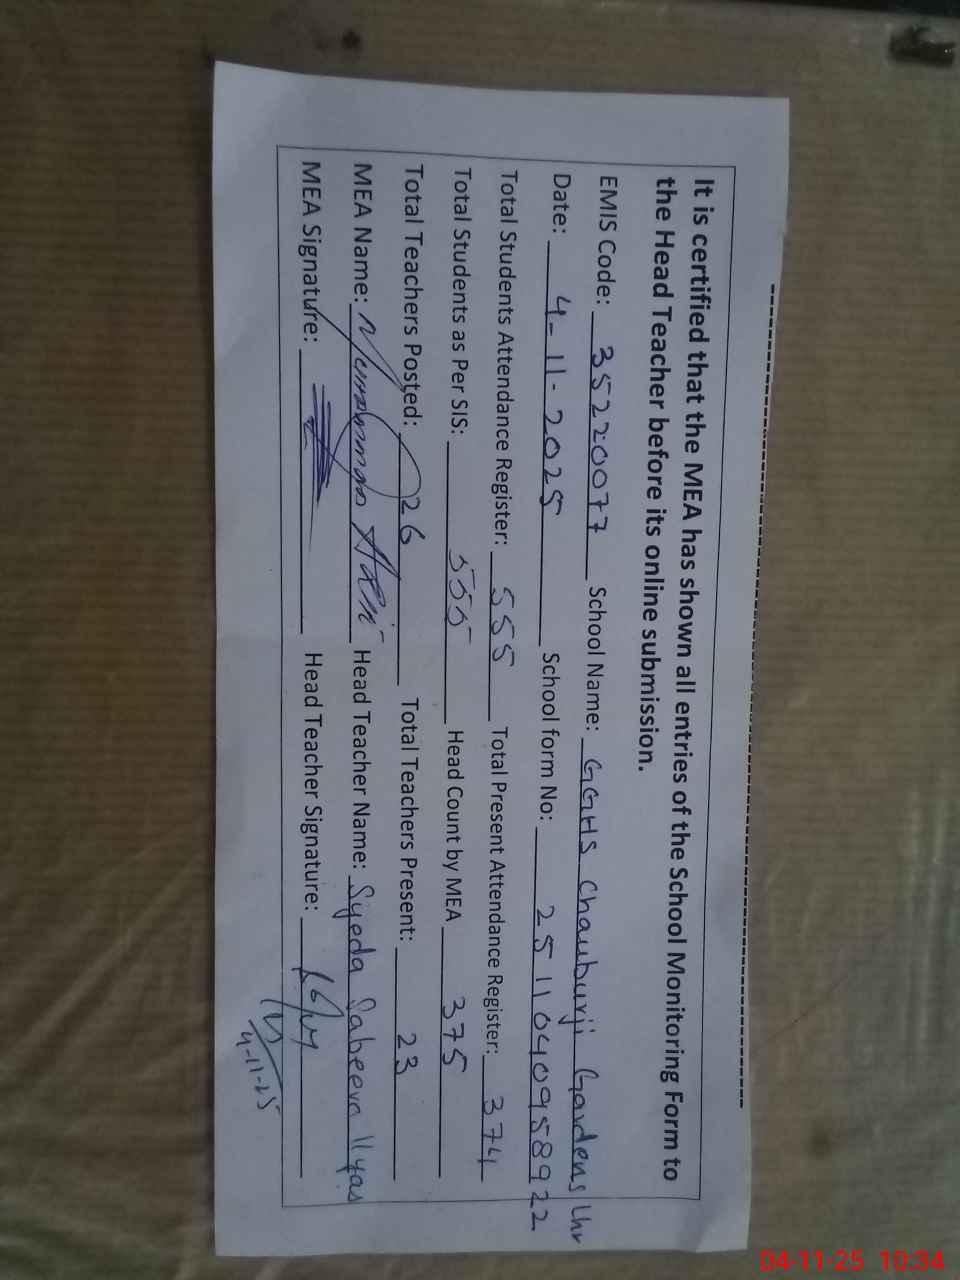 It is certified that the MEA has shown all entries of the School Monitoring Form to
the Head Teacher before its online submission.
EMIS Code: 35220077 School Name: GGHS Chauburji Gardens Lhr
Date: 4-11-2025 School form No: 2511040958922
Total Students Attendance Register: 555 Total Present Attendance Register: 374
Total Students as Per SIS: 555 Head Count by MEA 375
Total Teachers Posted: 26 Total Teachers Present: 23
MEA Name: Head Teacher Name: Syeda Sabeera Ilyas
MEA Signature: Head Teacher Signature:
4-11-25
04-11-25 10:34